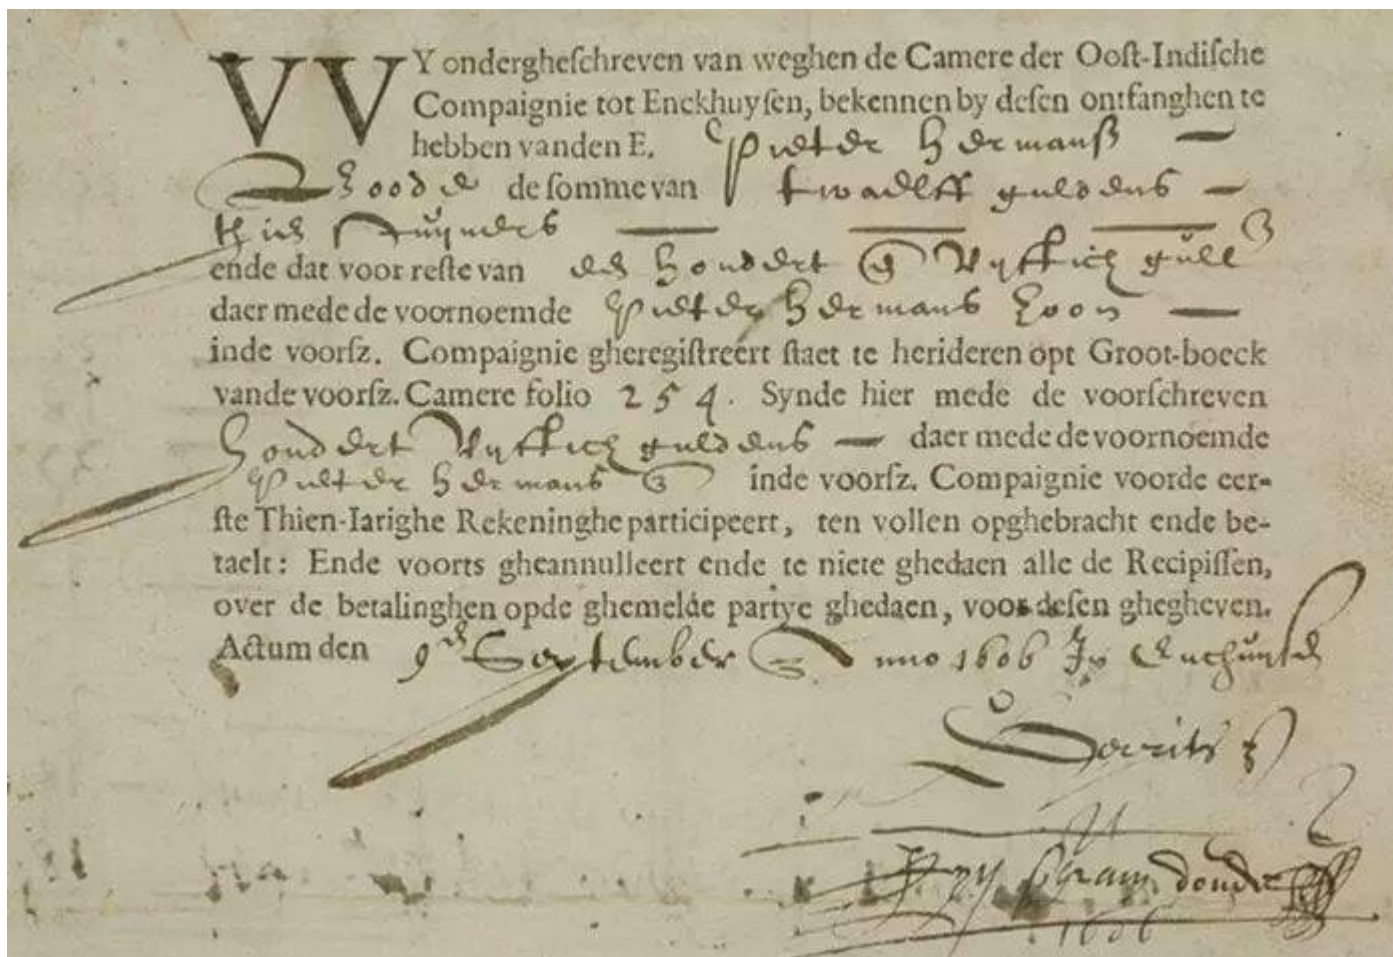 WY ondergheschreven van weghen de Camere der Oost-Indische
Compaignie tot Enckhuysen, bekennen by desen ontfanghen te
hebben vanden E. Pieter Hermansz
de somme van twaelff guldens
thien stuyvers
ende dat voor reste van een hondert en Vyftich gull
daer mede de voornoemde Pieter Hermans zoon
inde voorsz. Compaignie gheregistreert staet te herideren opt Groot-boeck
vande voorsz. Camere folio 254. Synde hier mede de voorschreven
hondert Vyftich guldens daer mede de voornoemde
Pieter Hermans inde voorsz. Compaignie voorde eer-
ste Thien-Iarighe Rekeninghe participeert, ten vollen opghebracht ende be-
taelt: Ende voorts gheannulleert ende te niete ghedaen alle de Recipissen,
over de betalinghen opde ghemelde partye ghedaen, voor desen ghegheven.
Actum den 9en September Anno 1606 In Enchuysen
Gerrits
1606